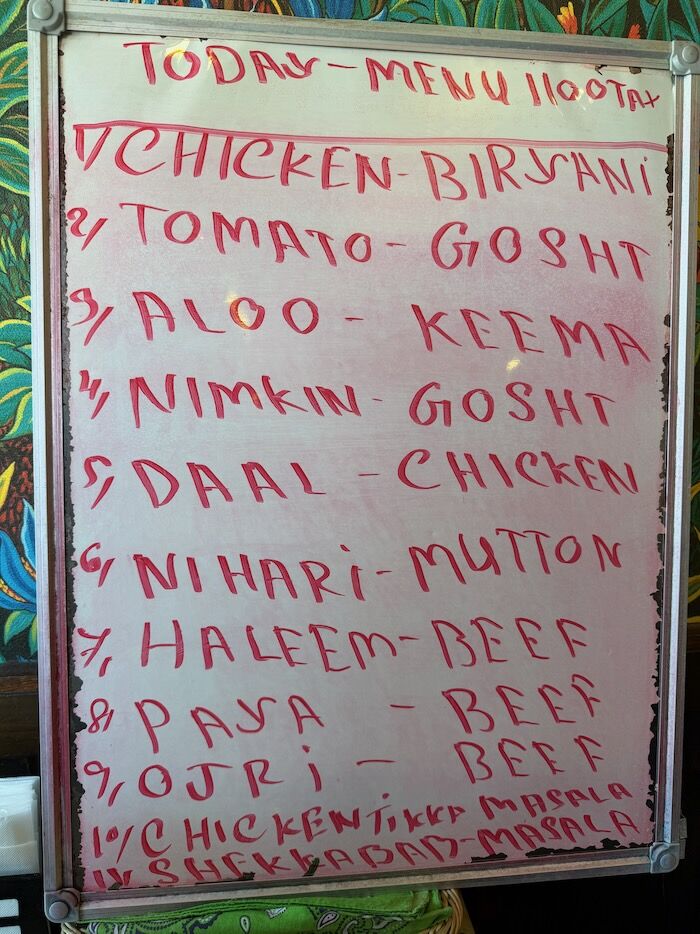 TODAY - MENU 1100TAX
1/ CHICKEN - BIRYANI
2/ TOMATO - GOSHT
3/ ALOO - KEEMA
4/ NIMKIN - GOSHT
5/ DAAL - CHICKEN
6/ NIHARi - MUTTON
7/ HALEEM - BEEF
8/ PAYA - BEEF
9/ OJRi - BEEF
10/ CHICKEN TiKKA MASALA
11/ - MASALA